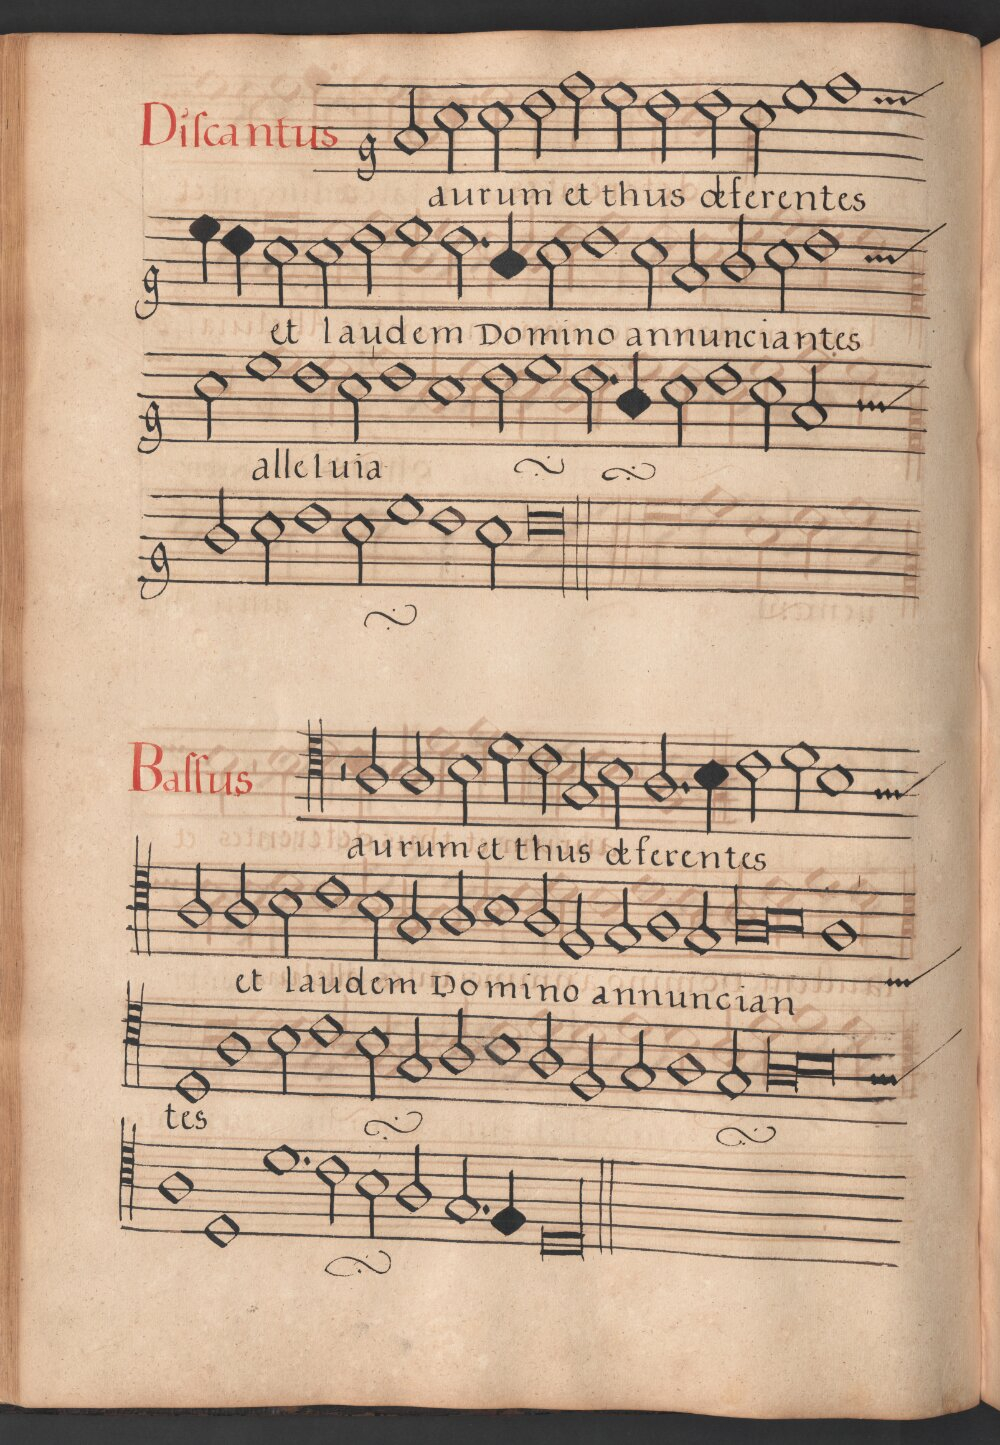 Diſcantus
aurum et thus deferentes
et laudem Domino annunciantes
alleluia
Baſſus
aurum et thus deferentes
et laudem Domino annuncian
tes